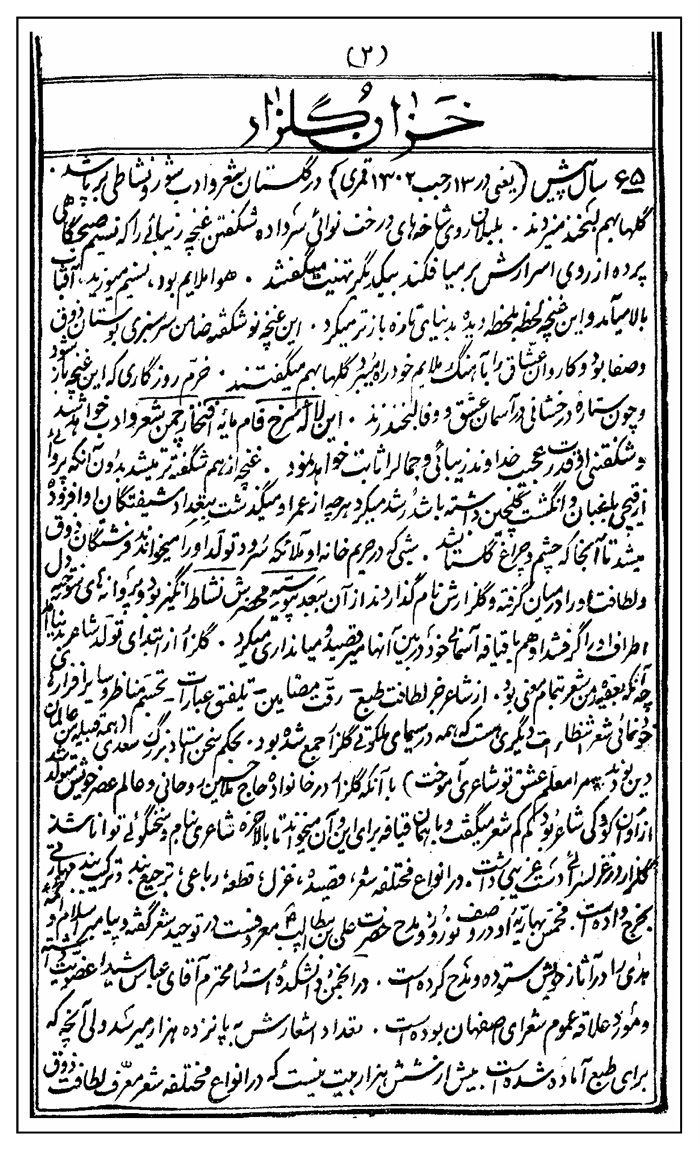 (۳)
خزان گلزار
۶۵ سال پیش (یعنی در ۱۳ رجب ۱۳۰۲ قمری) در گلستان شعر و ادب شور و نشاطی برپا شد.
گلها بهم لبخند میزدند . بلبلان روی شاخه‌های درخت نوائی سر داده شکفتن غنچه زیبائی را که نسیم صبحگاهی
پرده از روی اسرارش بر میافکند بیکدیگر تهنیت میگفتند . هوا ملایم بود، نسیم میوزید، آفتاب
بالا میآمد و این غنچه لحظه بلحظه دیده بدنیای تازه بازتر میکرد . این غنچه نوشکفته ضامن سرسبزی بوستان ذوق
و صفا بود و کاروان عشاق را با آهنگ ملایم خود راه میبرد گلها بهم میگفتند . خرم روزگاری که این غنچه باز شود
و چون ستاره درخشانی در آسمان عشق و وفا لبخند زند . این لاله سرخ فام مایه افتخار چمن شعر و ادب خواهد شد
و شکفتنی از قدرت عجیب خداوند زیبائی و جمال را ثابت خواهد نمود . غنچه از هم شکفته‌تر میشد بدون آنکه پروائی
از قیچی باغبان و انگشت گلچین داشته باشد رشد میکرد هرچه از عمر او میگذشت بتعداد شیفتگان او افزوده
میشد تا آنجا که چشم و چراغ گلستان شد . شبی که در حریم خانه او ملائکه سرود تولد او را میخواند فرشتگان ذوق
و لطافت او را در میان گرفته و گلزارش نام گذاردند از آن ببعد پیوسته محضرش نشاط انگیز بود و پروانه‌های سوخته دل
اطراف او را گرفتند او هم با قیافه آسمانی خود در بین آنها میرقصید و میانداری میکرد . گلزار از ابتدای تولد شاعر بدنیا آمد
چه آنکه بعقیده من شعر تمام معنی بود . از شاعر جز لطافت طبع - رقت مضامین - تلفیق عبارات - تجسم مناظر و سایر افزارهای
خودنمائی شعر انتظارات دیگری هست که همه در سیمای ملکوتی گلزار جمع شده بود . بحکم سخن استاد بزرگ سعدی (همه قبیله من عالمان
دین بودند - مرا معلم عشق تو شاعری آموخت) با آنکه گلزار در خانواده حاج ملاحسین روحانی و عالم عصر خویش متولد شد
از آوان کودکی شاعر بود کم کم شعر میگفت و با همان قیافه برای این و آن میخواند تا بالاخره شاعری بنام و سخنگوئی توانا شد
گلزار در غزلسرائی دست غریبی داشت . در انواع مختلفه شعر، قصیده، غزل، قطعه، رباعی، ترجیع بند و ترکیب بند مهارتی
بخرج داده است . مخمس بهاریه او در وصف نوروز و مدح حضرت علی بن ابیطالب ع معروفست در توحید شعر گفته و پیامبر اسلام و ائمه
هدی را در آثار خویش ستوده و مدح کرده است . در انجمن دانشکده استاد محترم آقای عباس شیدا عضویت داشته
و مورد علاقه عموم شعرای اصفهان بوده است . تعداد اشعارش به پانزده هزار میرسد ولی آنچه که
برای طبع آماده شده است بیش از شش هزار بیت نیست که در انواع مختلفه شعر معرف لطافت ذوق